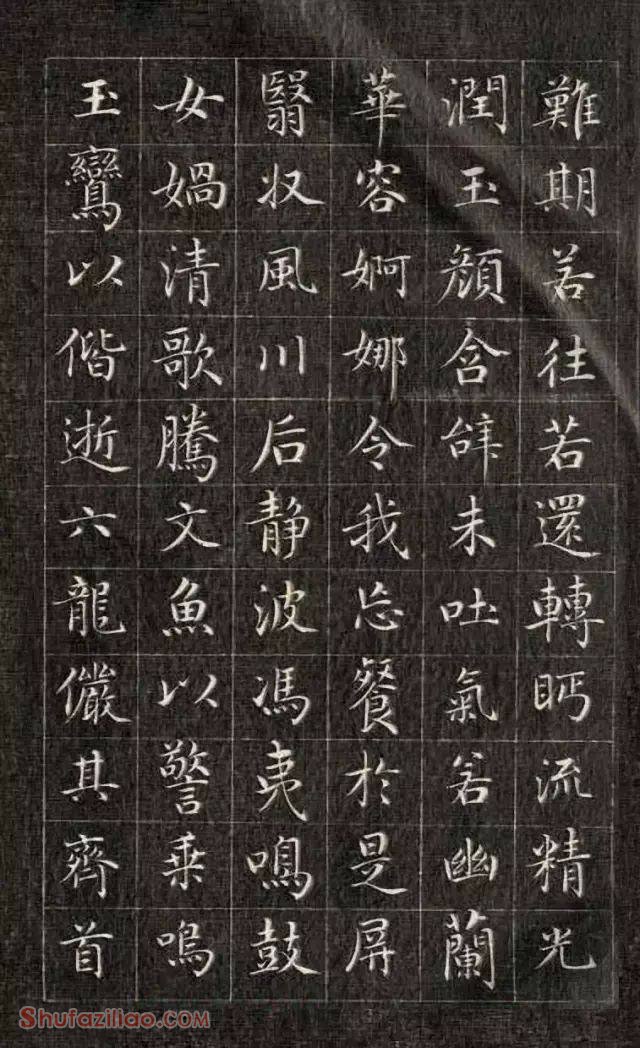 難期若往若還轉眄流精光
潤玉顏含辝未吐氣若幽蘭
華容婀娜令我忘餐於是屏
翳收風川后静波馮夷鳴鼓
女媧清歌騰文魚以警乗鳴
玉鸞以偕逝六龍儼其齊首
Shufaziliao.com